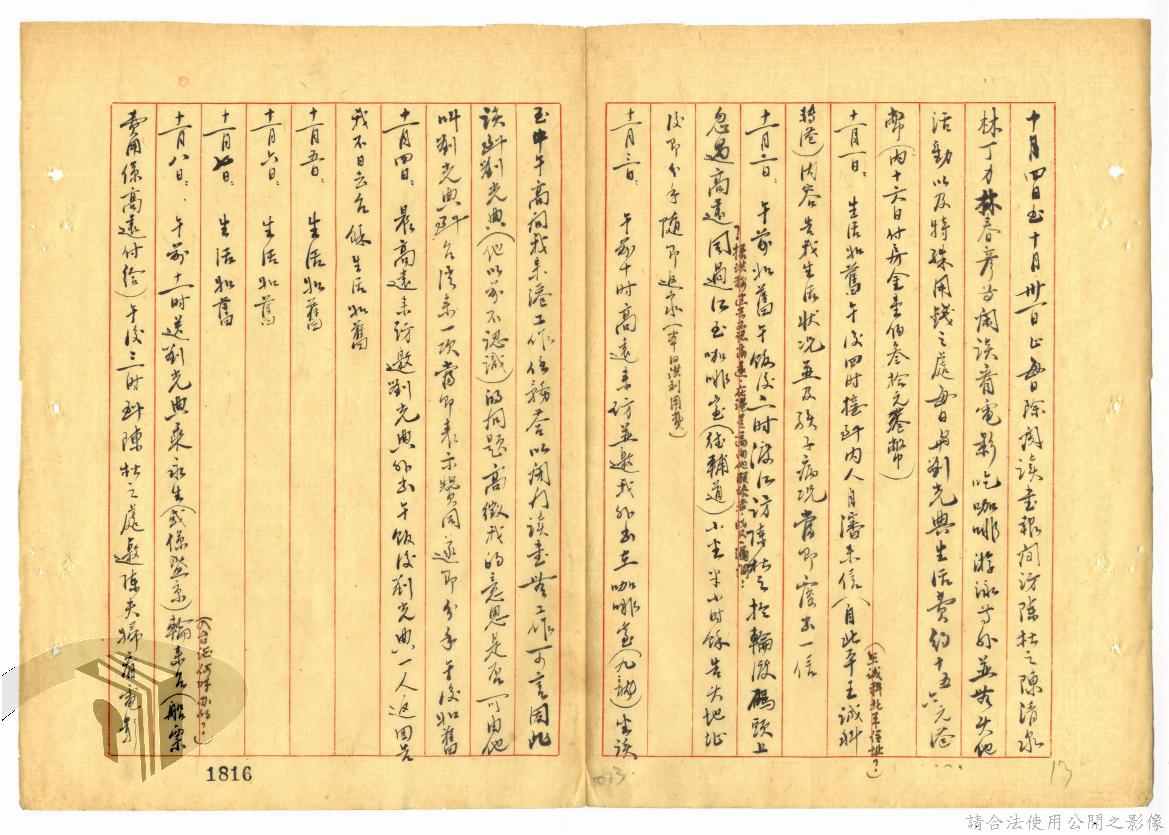 十月四日至十月卅一日止每日除閱讀書報間訪陳杜之陳清泉
林丁才林春彥等閑談看電影吃咖啡游泳等外並無其他
活動以及特殊用錢之處每日與劉光典生活費約十五六元港
幣(內十六日付房金壹佰叁拾元港幣)
十一月一日：生活如舊午後四時接到內人自瀋來信(自北平王誠科
(王誠科北平住址？)
轉港)內容告我生活狀況並及孩子病況當即覆去一信
十一月二日：午前如舊午飯後二時渡江訪陳杜之於輪渡碼頭上
忽遇高遠同過江至咖啡室(德輔道)小坐半小時餘告夫地址
後即分手隨即返家(本洪利用費)
十一月三日　午前十時高遠來訪並邀我外出在咖啡室(九龍)坐談
至中午高問我來港工作任務答以閉門讀書無工作可言因此
談到劉光典(他以前不認識)的問題高徵我的意思是否可由他
叫劉光典到台灣來一次當即表示贊同遂即分手午後如舊
十一月四日：晨高遠來訪邀劉光典外出午飯後劉光典一人返回告
我不日去台餘生活如舊
十一月五日：生活如舊
十一月六日：生活如舊
十一月七日：生活如舊
十一月八日：午前十一時送劉光典乘永生(或係盛京)輪來台(船票
(入台証何時辦的？)
費用係高遠付給)午後三時到陳杜之處邀陳夫婦看電影
1816
13
請合法使用公開之影像